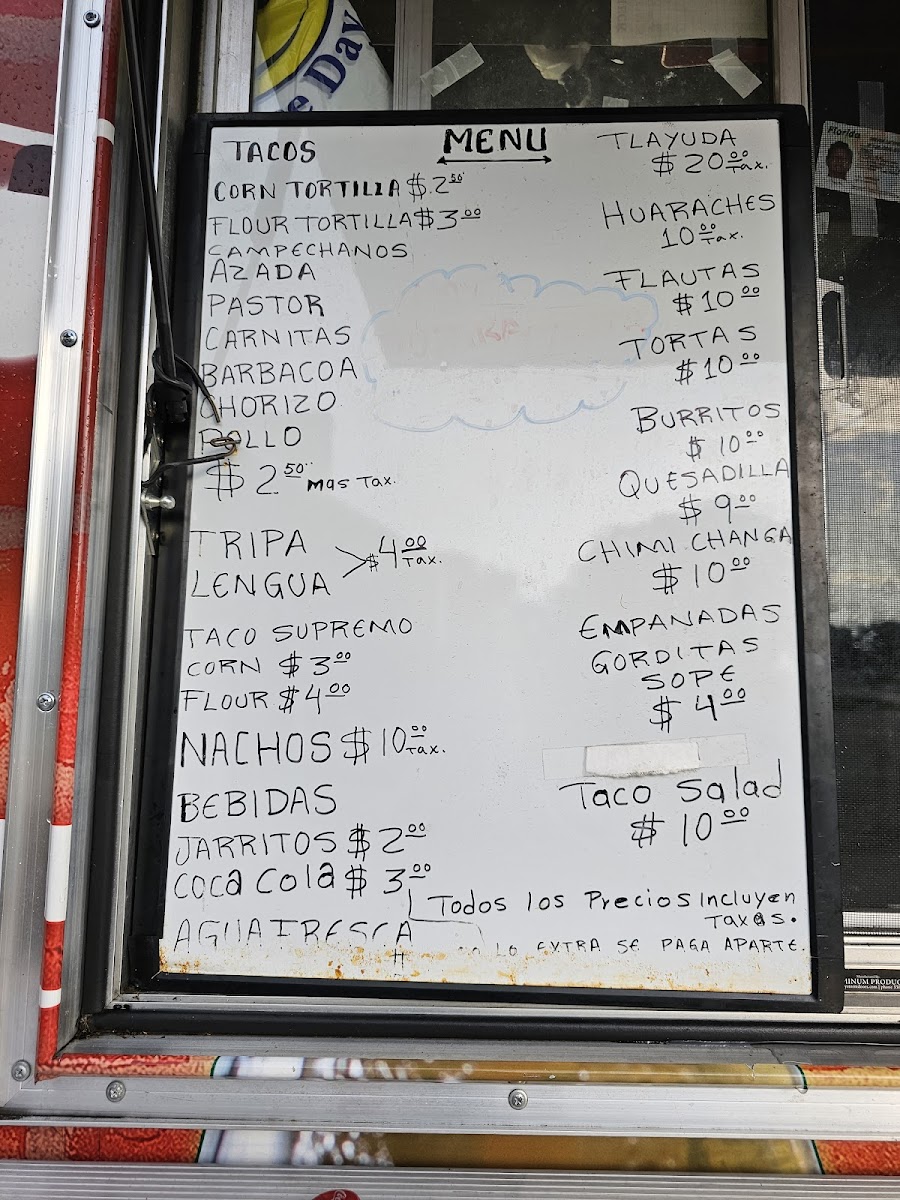 e Day
MENU
TACOS
CORN TORTILLA $2.50
FLOUR TORTILLA $3.00
CAMPECHANOS
AZADA
PASTOR
CARNITAS
BARBACOA
CHORIZO
POLLO
$2.50 mas Tax.
TRIPA
LENGUA
$4.00 Tax.
TACO SUPREMO
CORN $3.00
FLOUR $4.00
NACHOS $10.00 Tax.
BEBIDAS
JARRITOS $2.00
Coca Cola $3.00
AGUA FRESCA
TLAYUDA
$20.00 Tax.
HUARACHES
10.00 Tax.
FLAUTAS
$10.00
TORTAS
$10.00
BURRITOS
$10.00
QUESADILLA
$9.00
CHIMI CHANGA
$10.00
EMPANADAS
GORDITAS
SOPE
$4.00
Taco Salad
$10.00
Todos los Precios Incluyen
Taxes.
LO EXTRA SE PAGA APARTE.
Florida
MINUM PRODUC